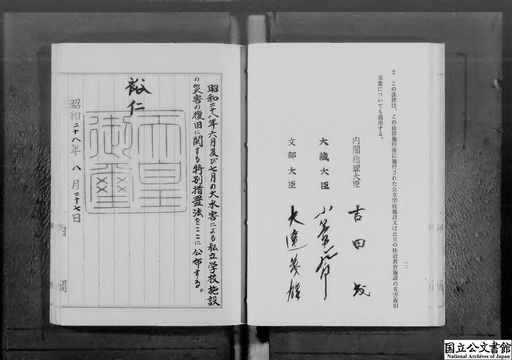 2 この法律は、この法律施行前に施行された公立学校施設又は公立の社会教育施設の災害復旧
事業についても適用する。
内閣総理大臣 吉田茂
大蔵大臣 小笠原三九郎
文部大臣 大達茂雄
二
昭和二十八年六月及び七月の大水害による私立学校施設
の災害の復旧に関する特別措置法をここに公布する。
裕仁
天皇
御璽
昭和二十八年八月二十七日
国立公文書館
National Archives of Japan